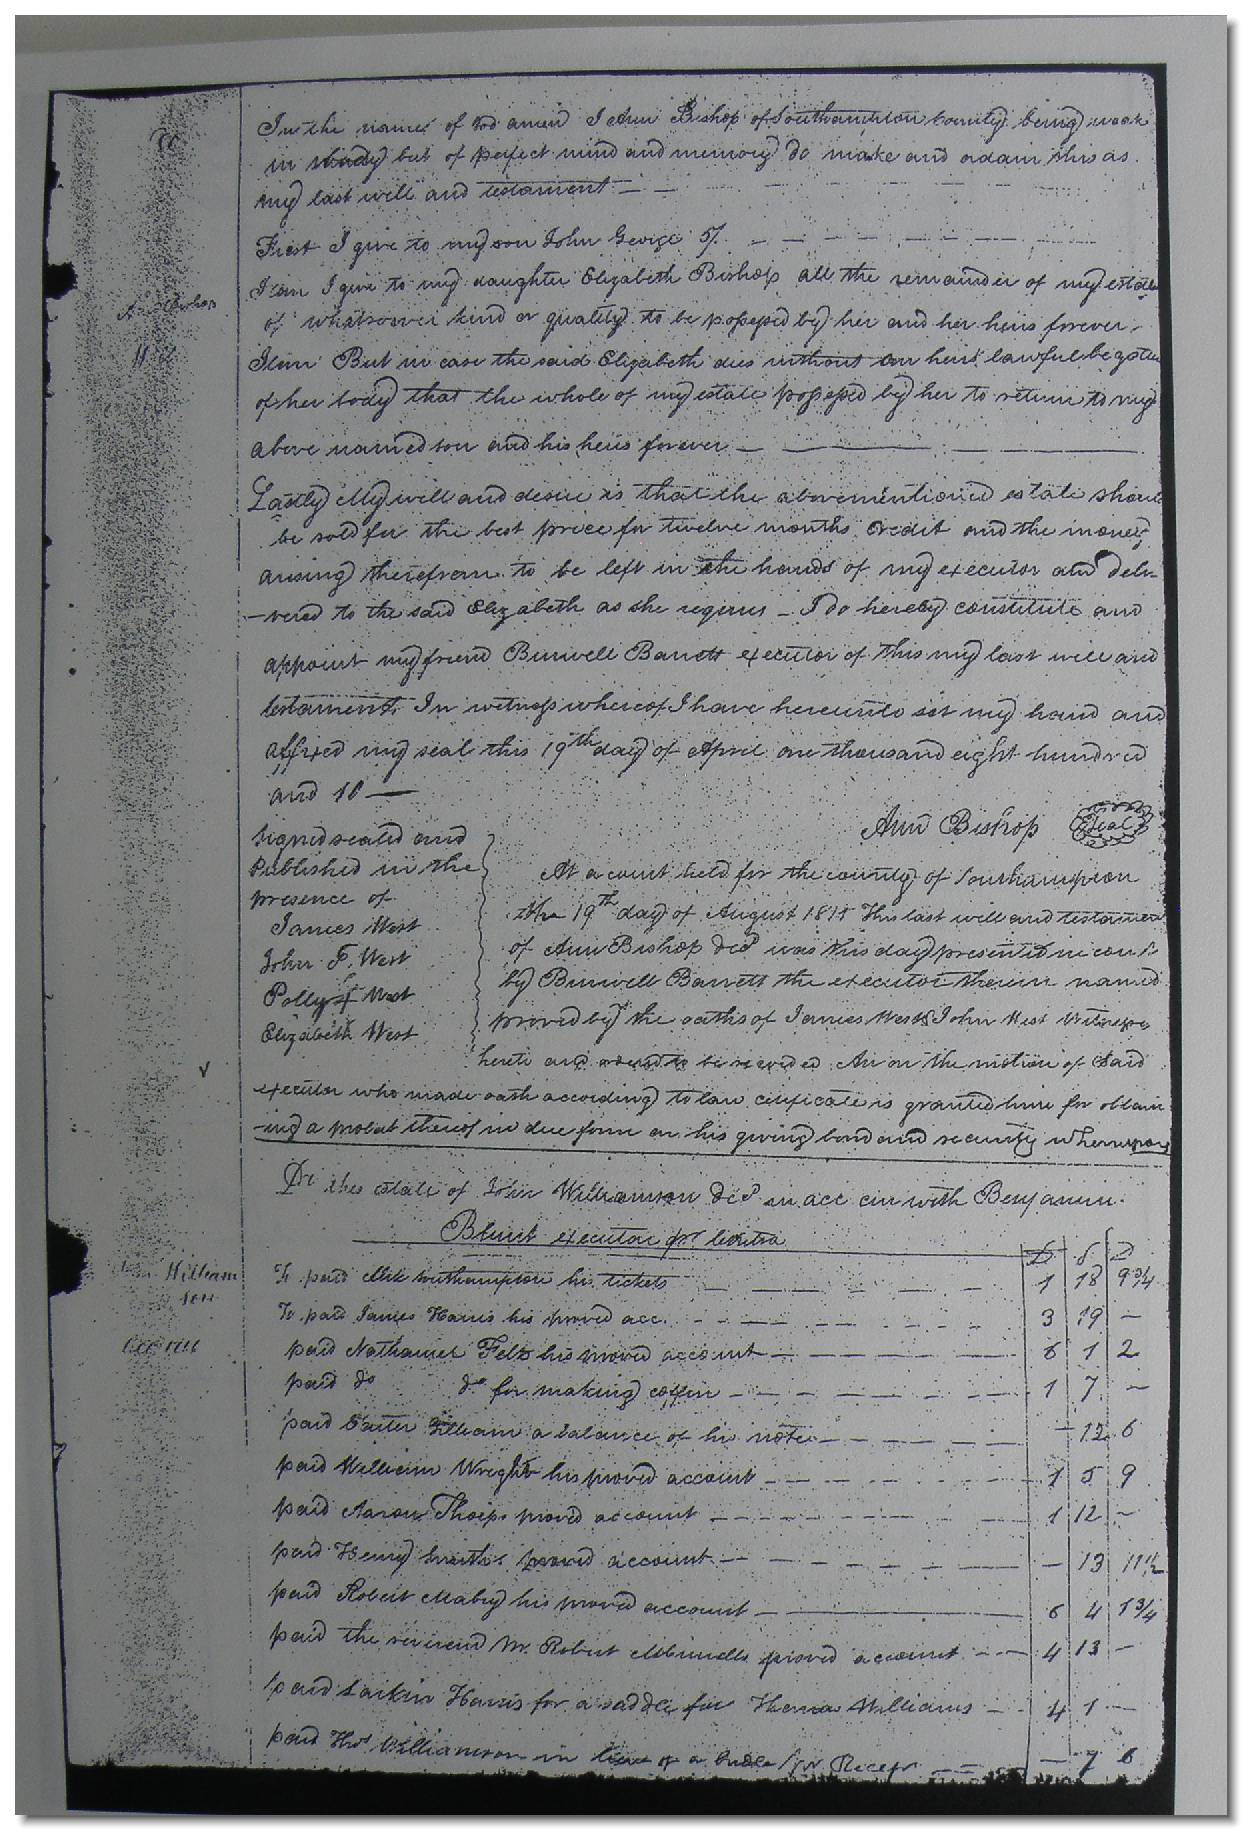 In the name of God amen I Ann Bishop of Southampton County being weak
in body but of perfect mind and memory do make and ordain this as
my last will and testament
First I give to my son John George 5/.
Item I give to my daughter Elizabeth Bishop all the remainder of my estate
of whatsoever kind or quality to be possessed by her and her heirs forever
Item But in case the said Elizabeth dies without an heir lawful begotten
of her body that the whole of my estate possessed by her to return to my
above named son and his heirs forever
Lastly My will and desire is that the abovementioned estate should
be sold for the best price for twelve months credit and the money
arising therefrom to be left in the hands of my executor and deli-
-vered to the said Elizabeth as she requires - I do hereby constitute and
appoint my friend Burwell Barrett executor of this my last will and
testament In witness whereof I have hereunto set my hand and
affixed my seal this 19th day of April one thousand eight hundred
and 10
Ann Bishop Seal
Signed sealed and
Published in the
presence of
James West
John F. West
Polly West
Elizabeth West
At a court held for the county of Southampton
the 19th day of August 1811 This last will and testament
of Ann Bishop decd was this day presented in court
by Burwell Barrett the executor therein named
proved by the oaths of James West & John West Witnesses
hereto and ordered to be recorded An on the motion of said
executor who made oath according to law certificate is granted him for obtain
-ing a probat thereof in due form on his giving bond and security whereupon
A Bishop
Will
Dr the estate of John Williamson decd in acc cur with Benjamin
Blunt executor pr contra
£ S D
John William
son
Acc curr
To paid southampton his tickets 1 18 9 3/4
To paid James Harris his proved acc. 3 19 -
paid Nathaniel Felts his proved account 6 1 2
paid do do for making coffin 1 7 -
paid Gilliam a balance of his note - 12 6
paid William Wright his proved account 1 5 9
paid Aaron Thorps proved account 1 12 -
paid Henry Smiths proved account - 13 11 1/2
paid Robert Mabry his proved account 6 4 1 3/4
paid the reverend Mr. Robert proved account 4 13 -
paid Larkin Harris for a saddle for Thomas Williams 4 1 -
paid Thos Williamson in lieu of a bridle pr Recept - 7 6